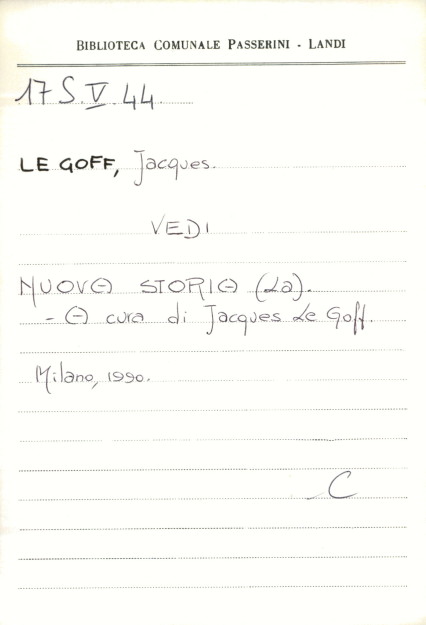 BIBLIOTECA COMUNALE PASSERINI - LANDI
17 S.V.44
LE GOFF, Jacques.
VEDI
NUOVA STORIA (La).
- A cura di Jacques Le Goff.
Milano, 1990.
C